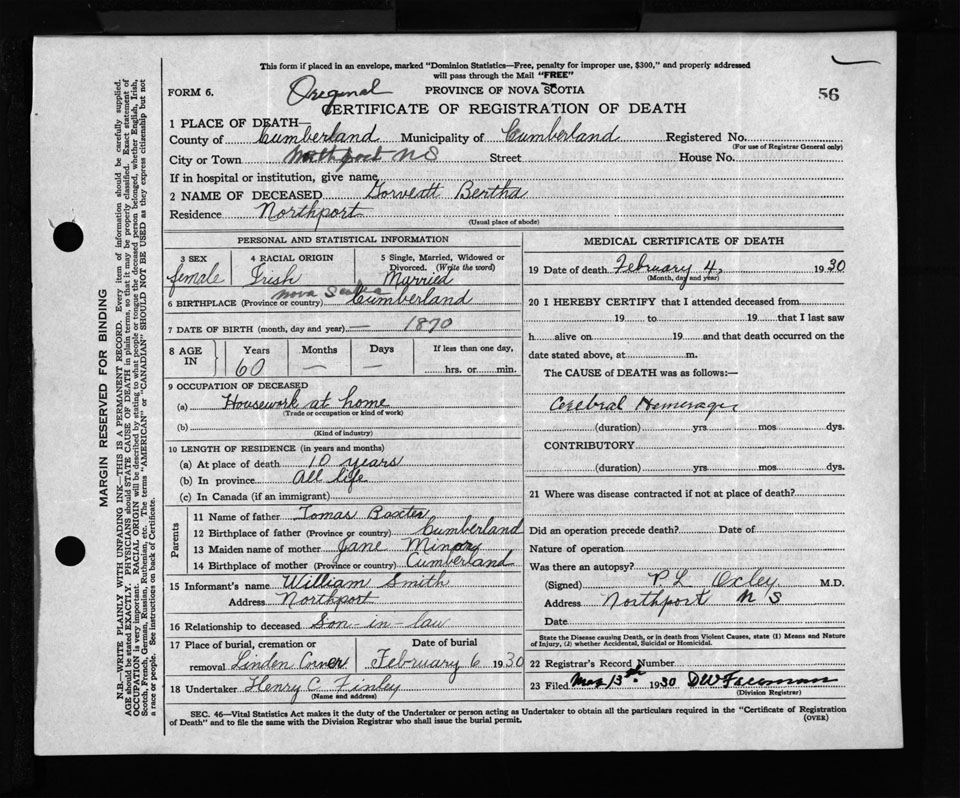 This form if placed in an envelope, marked "Dominion Statistics—Free, penalty for improper use, $300," and properly addressed
will pass through the Mail "FREE"
FORM 6. Original PROVINCE OF NOVA SCOTIA 56
CERTIFICATE OF REGISTRATION OF DEATH
1 PLACE OF DEATH—
County of Cumberland Municipality of Cumberland Registered No.
(For use of Registrar General only)
City or Town Northport N S Street House No.
If in hospital or institution, give name
2 NAME OF DECEASED Gorveatt Bertha
Residence Northport
(Usual place of abode)
PERSONAL AND STATISTICAL INFORMATION
3 SEX 4 RACIAL ORIGIN 5 Single, Married, Widowed or
Divorced. (Write the word)
female Irish Married
Nova Scotia
6 BIRTHPLACE (Province or country) Cumberland
7 DATE OF BIRTH (month, day and year) — 1870
8 AGE IN Years Months Days If less than one day,
60 — — hrs. or min.
9 OCCUPATION OF DECEASED
(a) Housework at home
(Trade or occupation or kind of work)
(b)
(Kind of industry)
10 LENGTH OF RESIDENCE (in years and months)
(a) At place of death 10 years
(b) In province All life
(c) In Canada (if an immigrant)
Parents
11 Name of father Tomas Baxter
12 Birthplace of father (Province or country) Cumberland
13 Maiden name of mother Jane Minor
14 Birthplace of mother (Province or country) Cumberland
15 Informant's name William Smith
Address Northport
16 Relationship to deceased Son-in-law
17 Place of burial, cremation or Date of burial
removal Linden Corner February 6 1930
18 Undertaker Henry C Finley
(Name and address)
MEDICAL CERTIFICATE OF DEATH
19 Date of death February 4, 1930
(Month, day and year)
20 I HEREBY CERTIFY that I attended deceased from
19 to 19 that I last saw
h alive on 19 and that death occurred on the
date stated above, at m.
The CAUSE of DEATH was as follows:—
Cerebral Hemerage
(duration) yrs mos dys.
CONTRIBUTORY
(duration) yrs mos dys.
21 Where was disease contracted if not at place of death?
Did an operation precede death? Date of
Nature of operation
Was there an autopsy?
(Signed) P. L Oxley M.D.
Address Northport N S
Date
State the Disease causing Death, or in death from Violent Causes, state (1) Means and Nature
of Injury, (2) whether Accidental, Suicidal or Homicidal.
22 Registrar's Record Number
23 Filed 13th 1930 DW
(Division Registrar)
SEC. 46—Vital Statistics Act makes it the duty of the Undertaker or person acting as Undertaker to obtain all the particulars required in the "Certificate of Registration
of Death" and to file the same with the Division Registrar who shall issue the burial permit. (OVER)
MARGIN RESERVED FOR BINDING
N.B.—WRITE PLAINLY WITH UNFADING INK—THIS IS A PERMANENT RECORD. Every item of information should be carefully supplied.
AGE should be stated EXACTLY. PHYSICIANS should STATE CAUSE OF DEATH in plain terms, so that it may be properly classified. Exact statement of
OCCUPATION is very important. RACIAL ORIGIN will be described by stating to what people or tongue the deceased person belonged, whether English, Irish,
Scotch, French, German, Russian, Ruthenian, etc. The terms "AMERICAN" or "CANADIAN" SHOULD NOT BE USED as they express citizenship but not
a race or people. See instructions on back of Certificate.